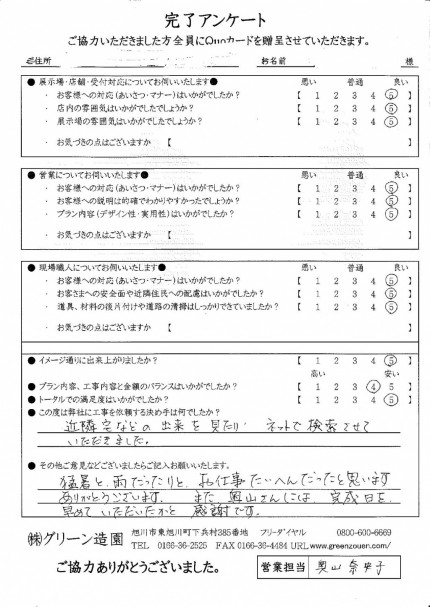 完了アンケート
ご協力いただきました方全員にQuoカードを贈呈させていただきます。
ご住所 お名前 様
●展示場・店舗・受付対応についてお伺いいたします● 悪い 普通 良い
・ お客様への対応(あいさつ・マナー)はいかがでしたか? 【 1 2 3 4 5 】
・ 店内の雰囲気はいかがでしたでしょうか? 【 1 2 3 4 5 】
・ 展示場の雰囲気はいかがでしたか? 【 1 2 3 4 5 】
・ お気づきの点はございますか 【 】
●営業についてお伺いいたします● 悪い 普通 良い
・ お客様への対応(あいさつ・マナー)はいかがでしたか? 【 1 2 3 4 5 】
・ お客様への説明は的確でわかりやすかったでしょうか? 【 1 2 3 4 5 】
・ プラン内容(デザイン性・実用性)はいかがでしたか? 【 1 2 3 4 5 】
・ お気づきの点はございますか 【 】
●現場職人についてお伺いいたします● 悪い 普通 良い
・ お客様への対応(あいさつ・マナー)はいかがでしたか? 【 1 2 3 4 5 】
・ お客さまへの安全面や近隣住民への配慮はいかがでしたか? 【 1 2 3 4 5 】
・ 道具、材料の後片付けや道路の清掃はしっかりできていましたか? 【 1 2 3 4 5 】
・ お気づきの点はございますか 【 】
●イメージ通りに出来上がりましたか? 【 1 2 3 4 5 】
高い 安い
●プラン内容、工事内容と金額のバランスはいかがでしたか? 【 1 2 3 4 5 】
●トータルでの満足度はいかがでしたか? 【 1 2 3 4 5 】
●この度は弊社に工事を依頼する決め手は何でしたか?
近隣宅などの出来を見たり ネットで検索させて
いただきました。
●その他ご意見などございましたらご記入お願いいたします。
猛暑と、雨だったりと、お仕事たいへんだったと思います
ありがとうございます。 また、奥山さんには、完成日を
早めていただいたかと 感謝です。
㈱グリーン造園 旭川市東旭川町下兵村385番地 フリーダイヤル 0800-600-6669
TEL 0166-36-2525 FAX 0166-36-4484 URL www.greenzouen.com/
ご協力ありがとうございました。 営業担当 奥山 奈央子